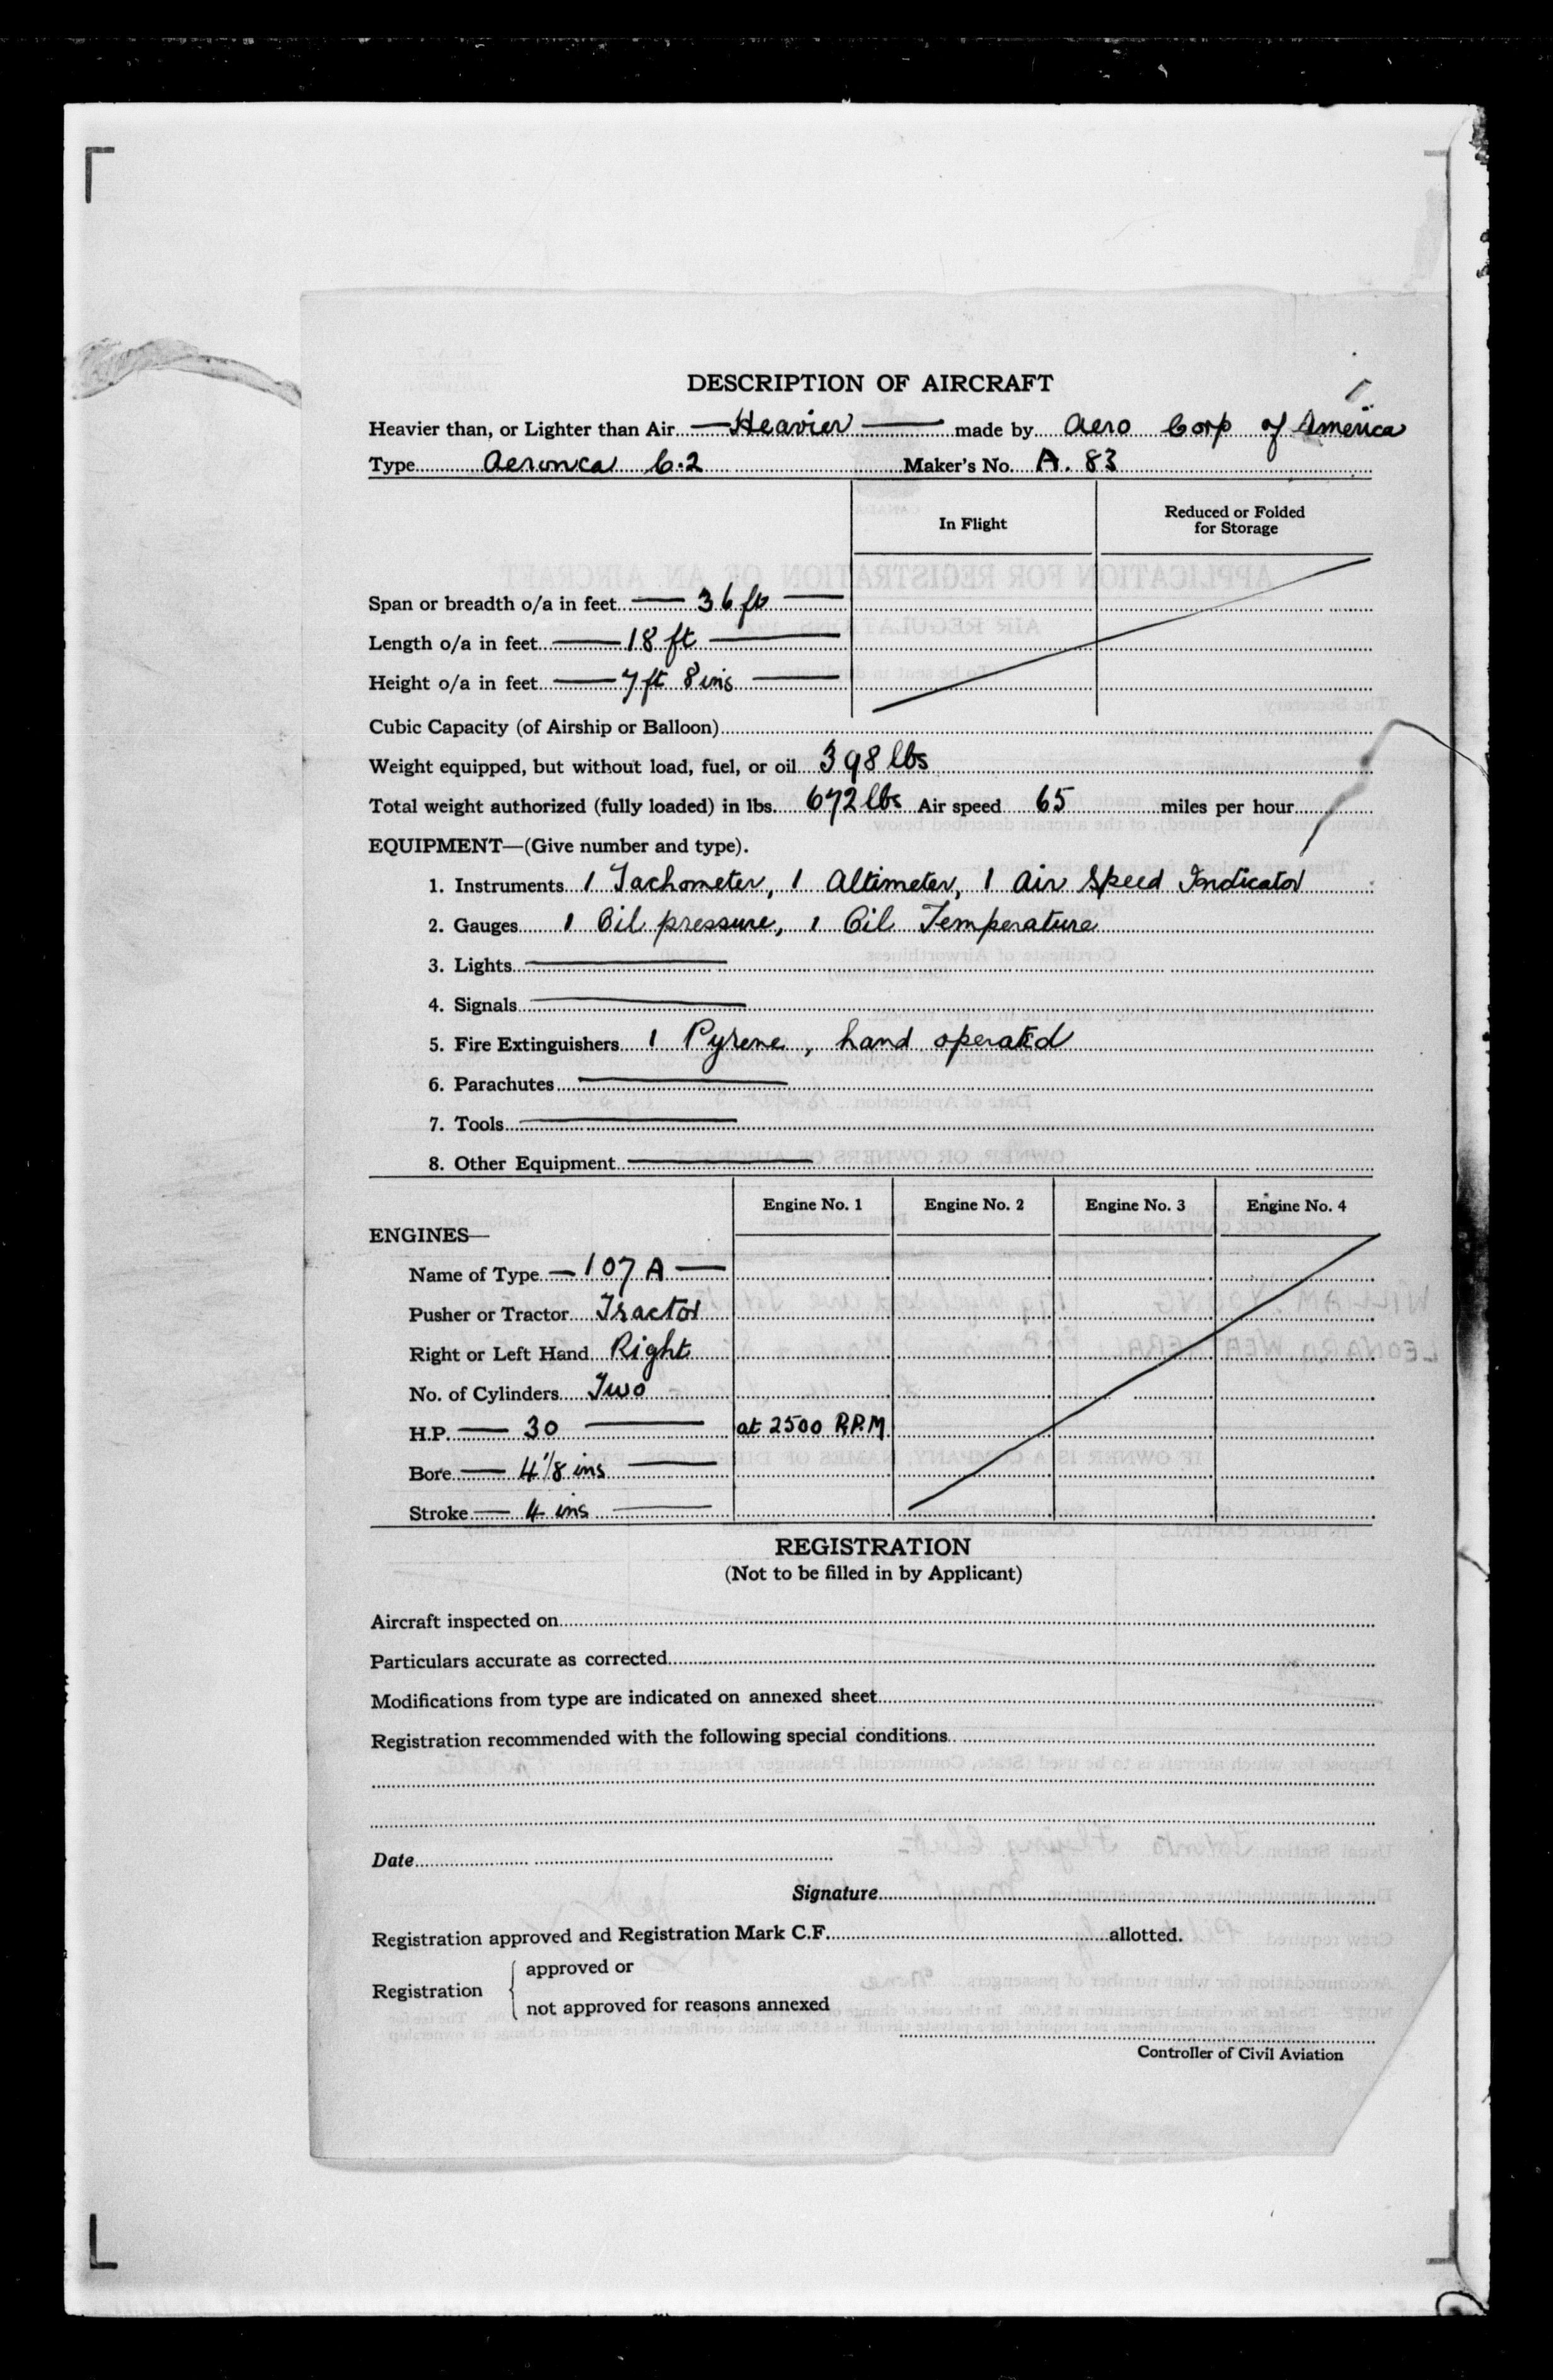 DESCRIPTION OF AIRCRAFT
Heavier than, or Lighter than Air Heavier made by Aero Corp of America
Type Aeronca C.2 Maker's No. A. 83
In Flight Reduced or Folded for Storage
Span or breadth o/a in feet 36 ft
Length o/a in feet 18 ft
Height o/a in feet 7 ft 8 ins
Cubic Capacity (of Airship or Balloon)
Weight equipped, but without load, fuel, or oil 398 lbs
Total weight authorized (fully loaded) in lbs. 672 lbs Air speed 65 miles per hour
EQUIPMENT—(Give number and type).
1. Instruments 1 Tachometer, 1 Altimeter, 1 Air Speed Indicator
2. Gauges 1 Oil pressure, 1 Oil Temperature
3. Lights
4. Signals
5. Fire Extinguishers 1 Pyrene, hand operated
6. Parachutes
7. Tools
8. Other Equipment
Engine No. 1 Engine No. 2 Engine No. 3 Engine No. 4
ENGINES—
Name of Type 107 A
Pusher or Tractor Tractor
Right or Left Hand Right
No. of Cylinders Two
H.P. 30 at 2500 R.P.M.
Bore 4 1/8 ins
Stroke 4 ins
REGISTRATION
(Not to be filled in by Applicant)
Aircraft inspected on
Particulars accurate as corrected
Modifications from type are indicated on annexed sheet
Registration recommended with the following special conditions
Date
Signature
Registration approved and Registration Mark C.F. allotted.
Registration approved or
not approved for reasons annexed
Controller of Civil Aviation